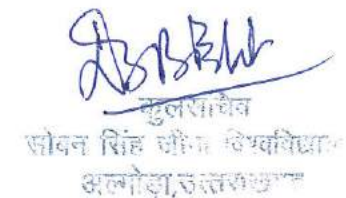 कुलसचिव
सोबन सिंह जीना विश्वविद्यालय
अल्मोड़ा, उत्तराखण्ड